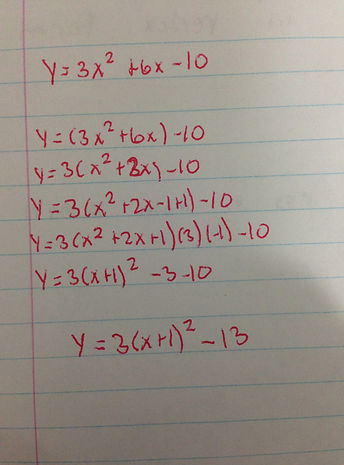 y = 3x² + 6x - 10
y = (3x² + 6x) - 10
y = 3(x² + 2x) - 10
y = 3(x² + 2x - 1 + 1) - 10
y = 3(x² + 2x + 1)(3)(-1) - 10
y = 3(x + 1)² - 3 - 10
y = 3(x + 1)² - 13